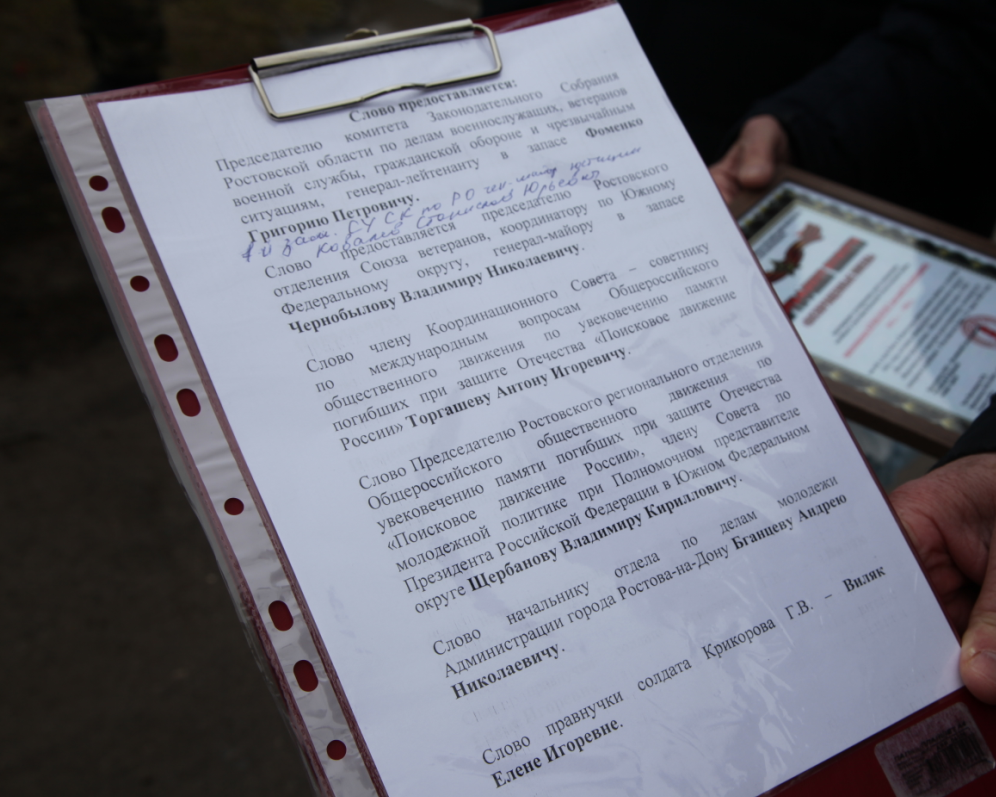 Слово предоставляется:
Председателю комитета Законодательного Собрания
Ростовской области по делам военнослужащих, ветеранов
военной службы, гражданской обороне и чрезвычайным
ситуациям, генерал-лейтенанту в запасе Фоменко
Григорию Петровичу.
зам. ГУ СК по РО ген. юстиции
Станислав Юрьевич
Слово предоставляется председателю Ростовского
отделения Союза ветеранов, координатору по Южному
Федеральному округу, генерал-майору в запасе
Чернобылову Владимиру Николаевичу.
Слово члену Координационного Совета – советнику
по международным вопросам Общероссийского
общественного движения по увековечению памяти
погибших при защите Отечества «Поисковое движение
России» Торгашеву Антону Игоревичу.
Слово Председателю Ростовского регионального отделения
Общероссийского общественного движения по
увековечению памяти погибших при защите Отечества
«Поисковое движение России», члену Совета по
молодежной политике при Полномочном представителе
Президента Российской Федерации в Южном Федеральном
округе Щербанову Владимиру Кирилловичу.
Слово начальнику отдела по делам молодежи
Администрации города Ростова-на-Дону Бганцеву Андрею
Николаевичу.
Слово правнучки солдата Крикорова Г.В. – Виляк
Елене Игоревне.